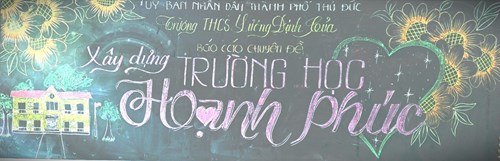 ỦY BAN NHÂN DÂN THÀNH PHỐ THỦ ĐỨC
Trường THCS Lương Định Của
BÁO CÁO CHUYÊN ĐỀ:
Xây dựng TRƯỜNG HỌC
Hạnh phúc